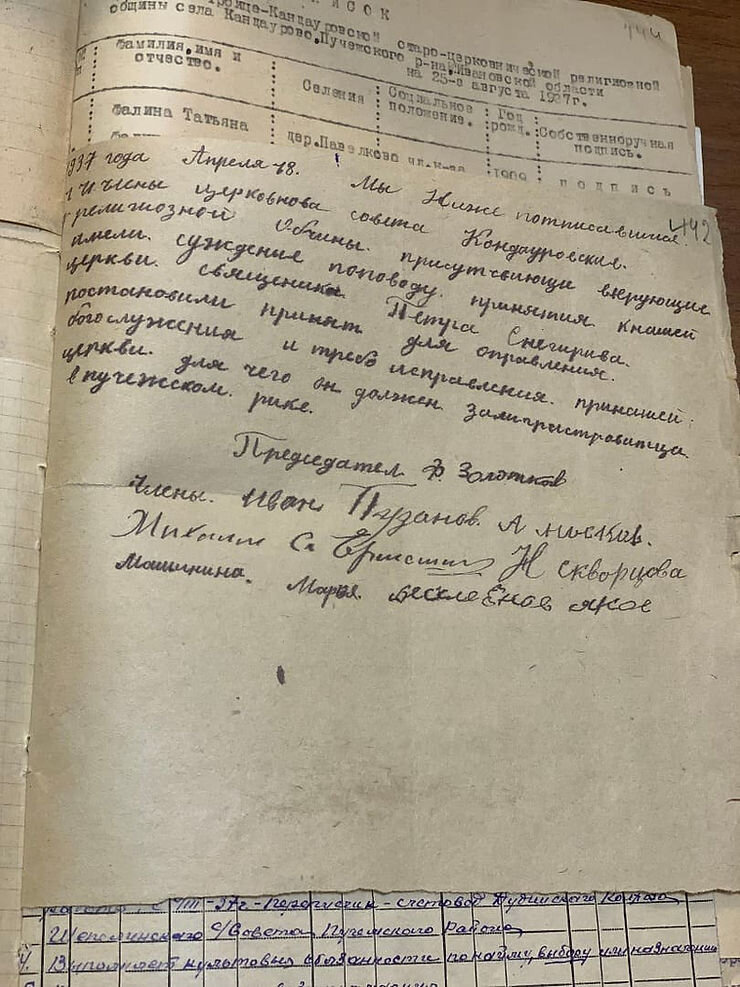 ИСОК
444
роице-Кандауровской старо-церковнической религиозной
общины села Кандаурово, Пучежского р-на, Ивановской области
на 25-е августа 1937г.
Фамилия, имя и
отчество.
Селения
Социальное
положение.
Год
рожд.
Собственноручная
подпись.
Фалина Татьяна
дер. Павелково чл. к-за
1909
подпись
442
1937 года Апреля 18. Мы Ниже потписавшиися
и Члены церковнова совета Кондауровские.
религиозной Общины. присутсвующи верующие
имели. суждение поповоду. принятия. кнашей
церкви. священика Петра Снегирива.
постановили принят для оправления.
богослужения и треб исправления. принашей.
церкви. для чего он должен зарегистроватца
в пучежском. рике.
Председател. Ф. Золотков
члены. Иван Пузанов. А носков.
Михаил Н скворцова
Машинина. Марья.
с/Совета, Пучежского Района,
4. Выполняет культовыя обязанности по найму, выбору или назначению